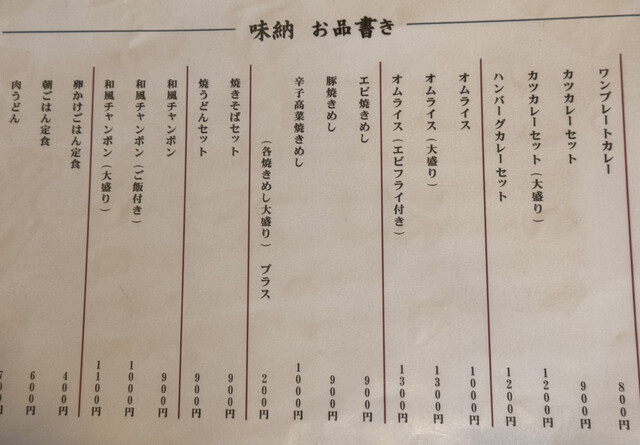 味納 お品書き
ワンプレートカレー 800円
カツカレーセット 900円
カツカレーセット(大盛り) 1200円
ハンバーグカレーセット 1200円
オムライス 1000円
オムライス(大盛り) 1300円
オムライス(エビフライ付き) 1300円
エビ焼きめし 900円
豚焼きめし 900円
辛子高菜焼きめし 1000円
(各焼きめし大盛り) プラス 200円
焼きそばセット 900円
焼うどんセット 900円
和風チャンポン 900円
和風チャンポン(ご飯付き) 1000円
和風チャンポン(大盛り) 1100円
卵かけごはん定食 400円
朝ごはん定食 600円
肉うどん 700円